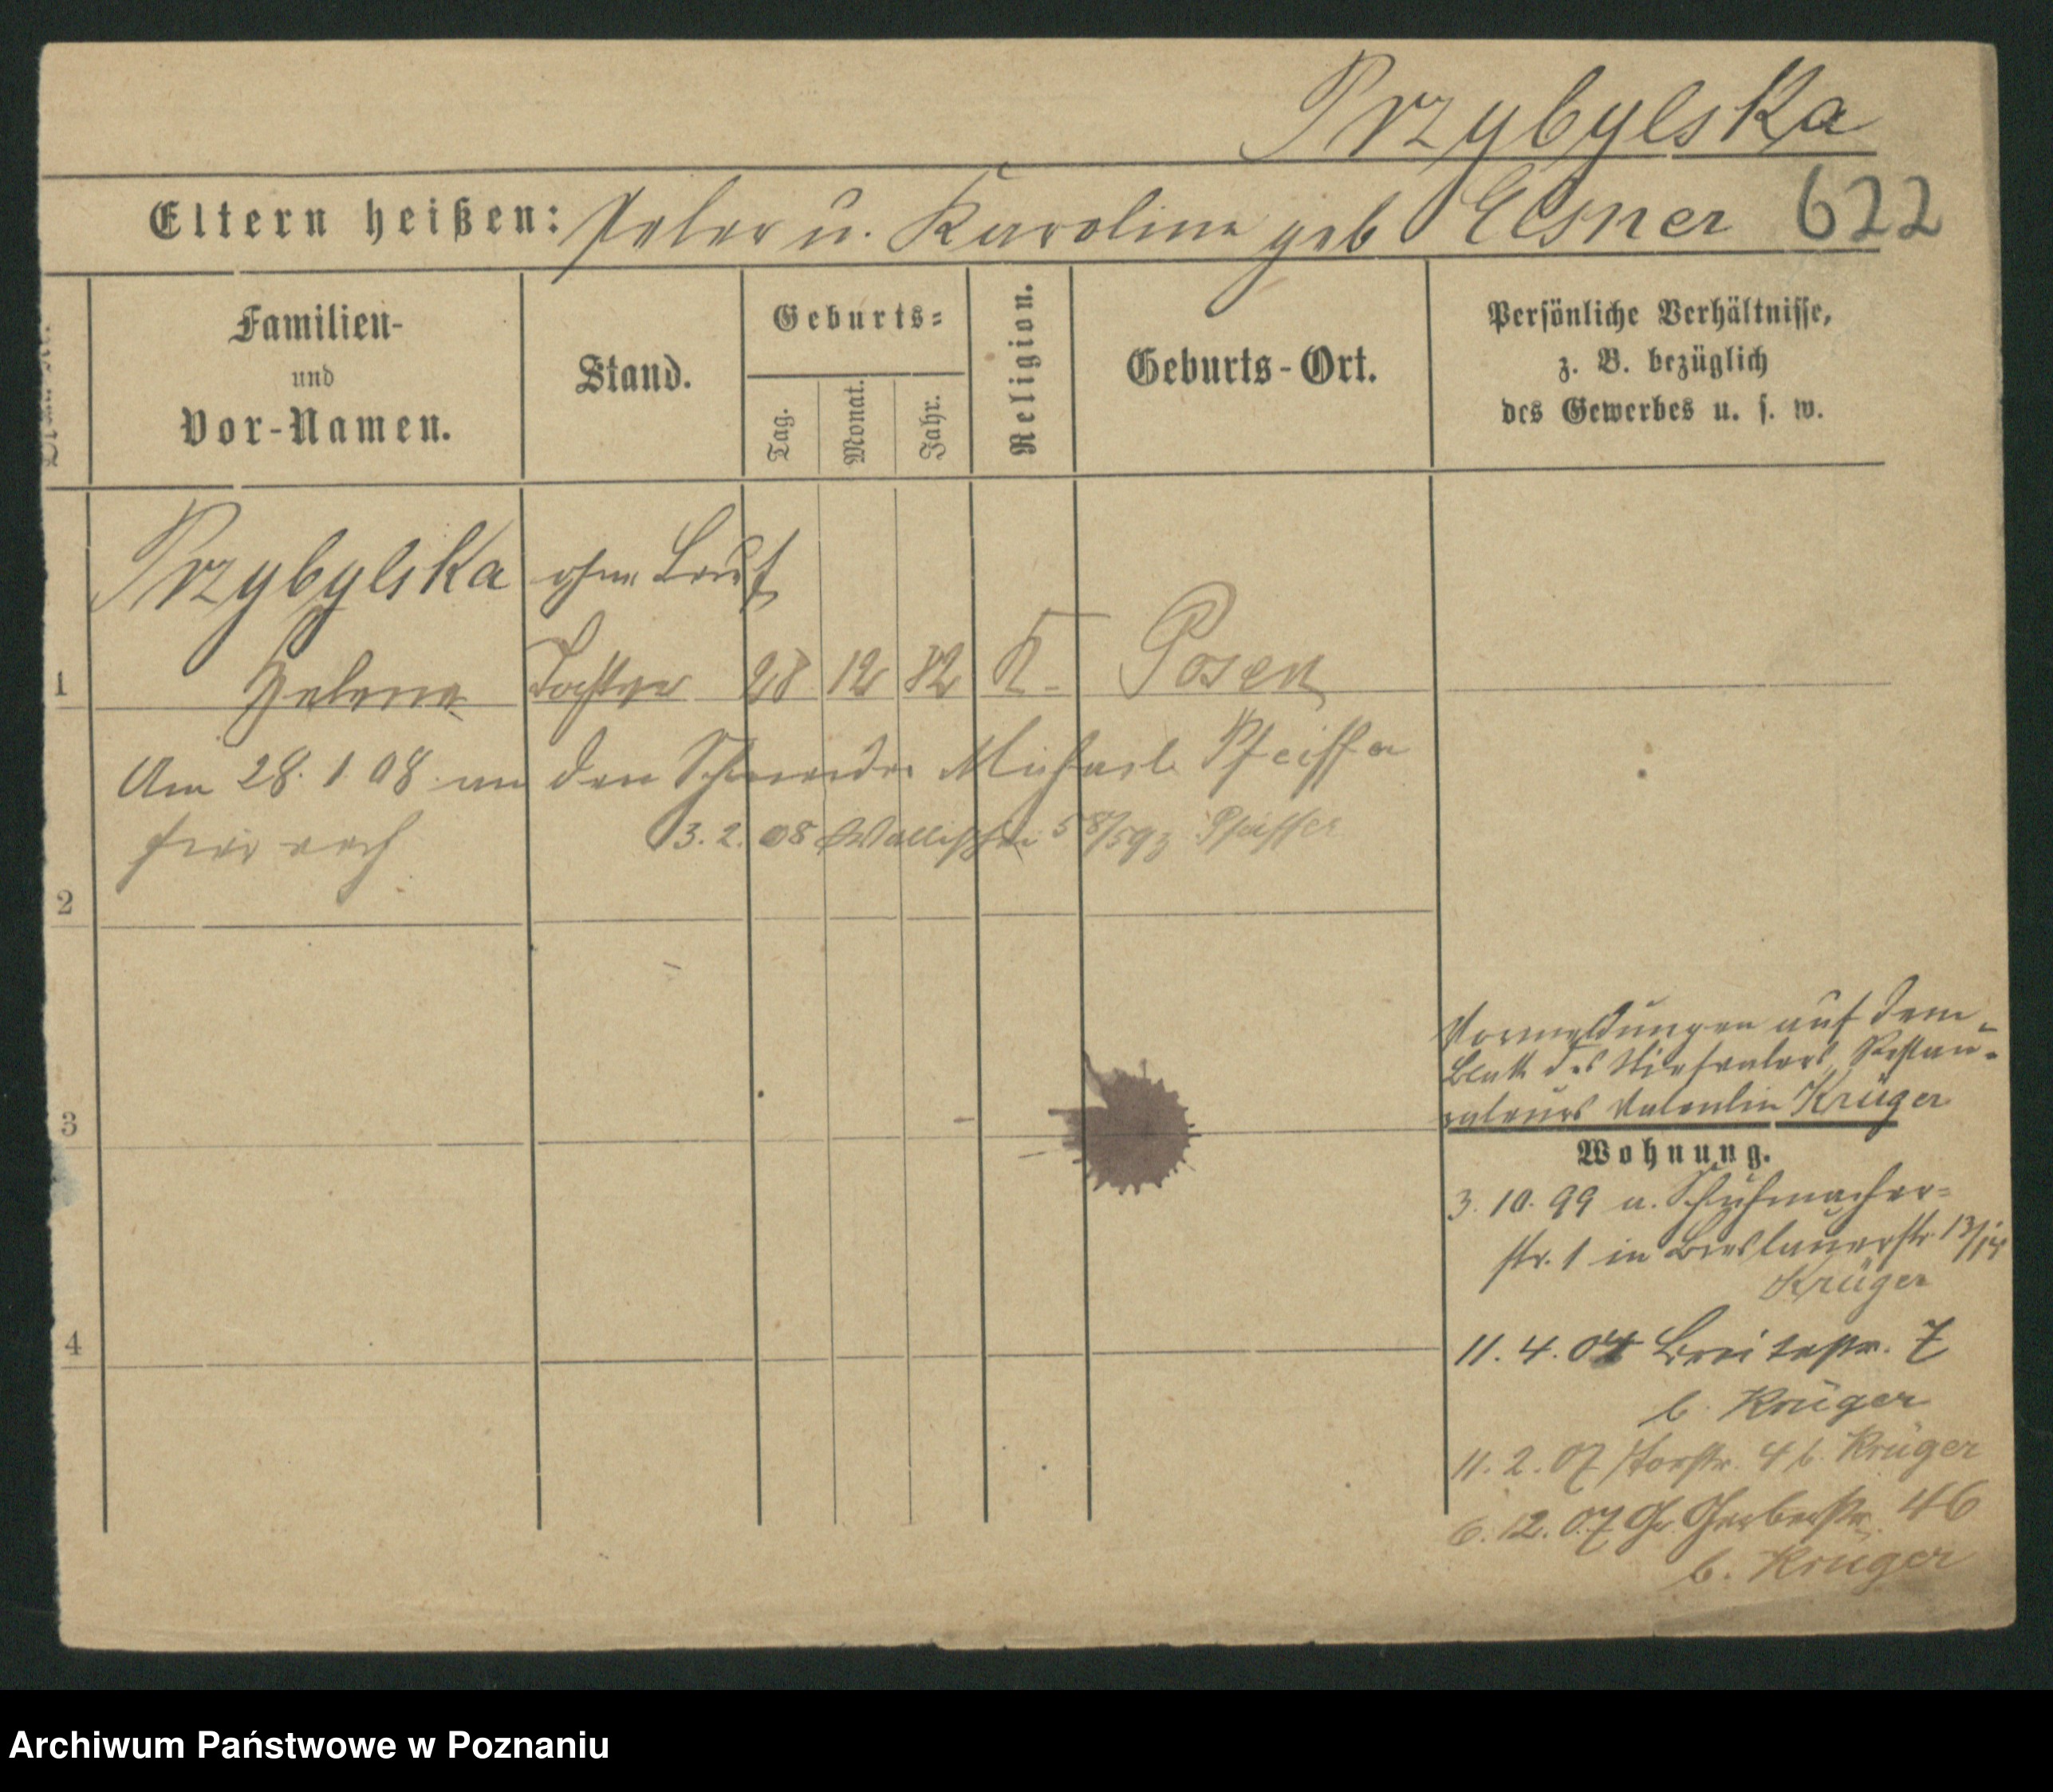 Przybylska
Eltern heißen: Peter u. Karoline geb Elsner 622
Familien-
und
Vor-Namen.
Stand.
Geburts-
Tag.
Monat.
Jahr.
Religion.
Geburts-Ort.
Persönliche Verhältnisse,
z. B. bezüglich
des Gewerbes u. s. w.
Przybylska ohne Beruf
1 Helene Tochter 28 12 82 K. Posen
Am 28. 1. 08 an den Schneider Michael Pfeiffer
3. 2. 08 Wallischei 58/593 Pfeiffer
2
3
4
Vormeldungen auf dem
Blatt des Stiefvaters, Restau-
rateurs Valentin Krüger
Wohnung.
3. 10. 99 a. Schuhmacher-
str. 1 in Breslauerstr. 13/14
Krüger
11. 4. 04 Breitestr. 7
b. Krüger
11. 2. 07 Torstr. 4 b. Krüger
6. 12. 07 Gr. Gerberstr. 46
b. Krüger
Archiwum Państwowe w Poznaniu